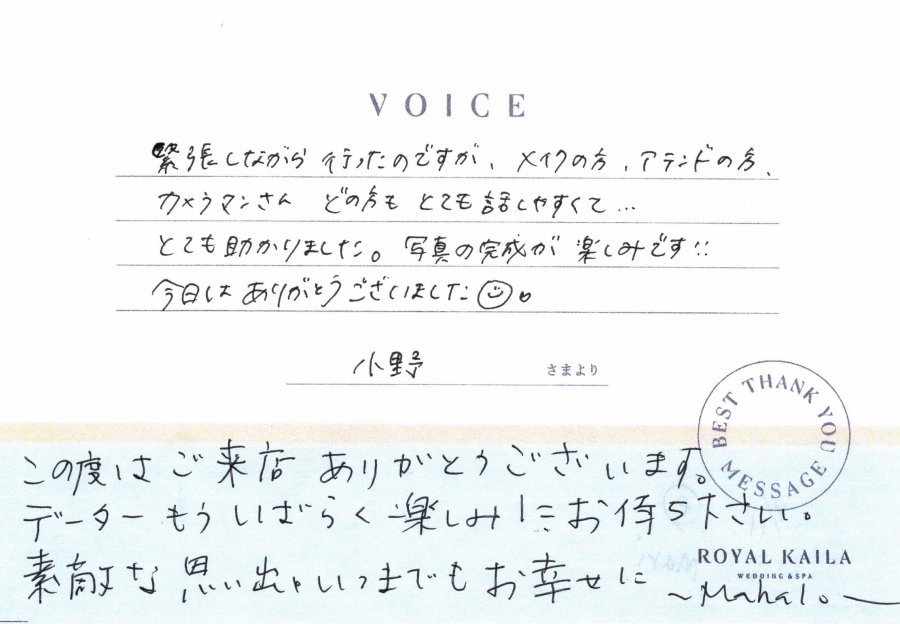 VOICE
緊張しながら 行ったのですが、メイクの方、アテンドの方、
カメラマンさん どの方も とても 話しやすくて…
とても助かりました。写真の完成が 楽しみです!!
今日は ありがとうございました☺。
小野 さまより
BEST THANK YOU MESSAGE
この度は ご来店 ありがとうございます。
データー もうしばらく 楽しみにお待ち下さい。
素敵な 思い出といつまでもお幸せに
ROYAL KAILA
WEDDING & SPA
~Mahalo~